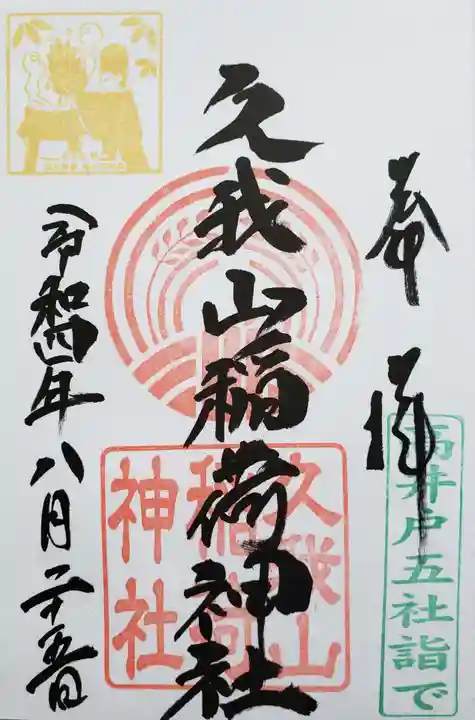 奉拝
高井戸五社詣で
久我山稲荷神社
久我山
稲荷
神社
令和四年八月二十五日